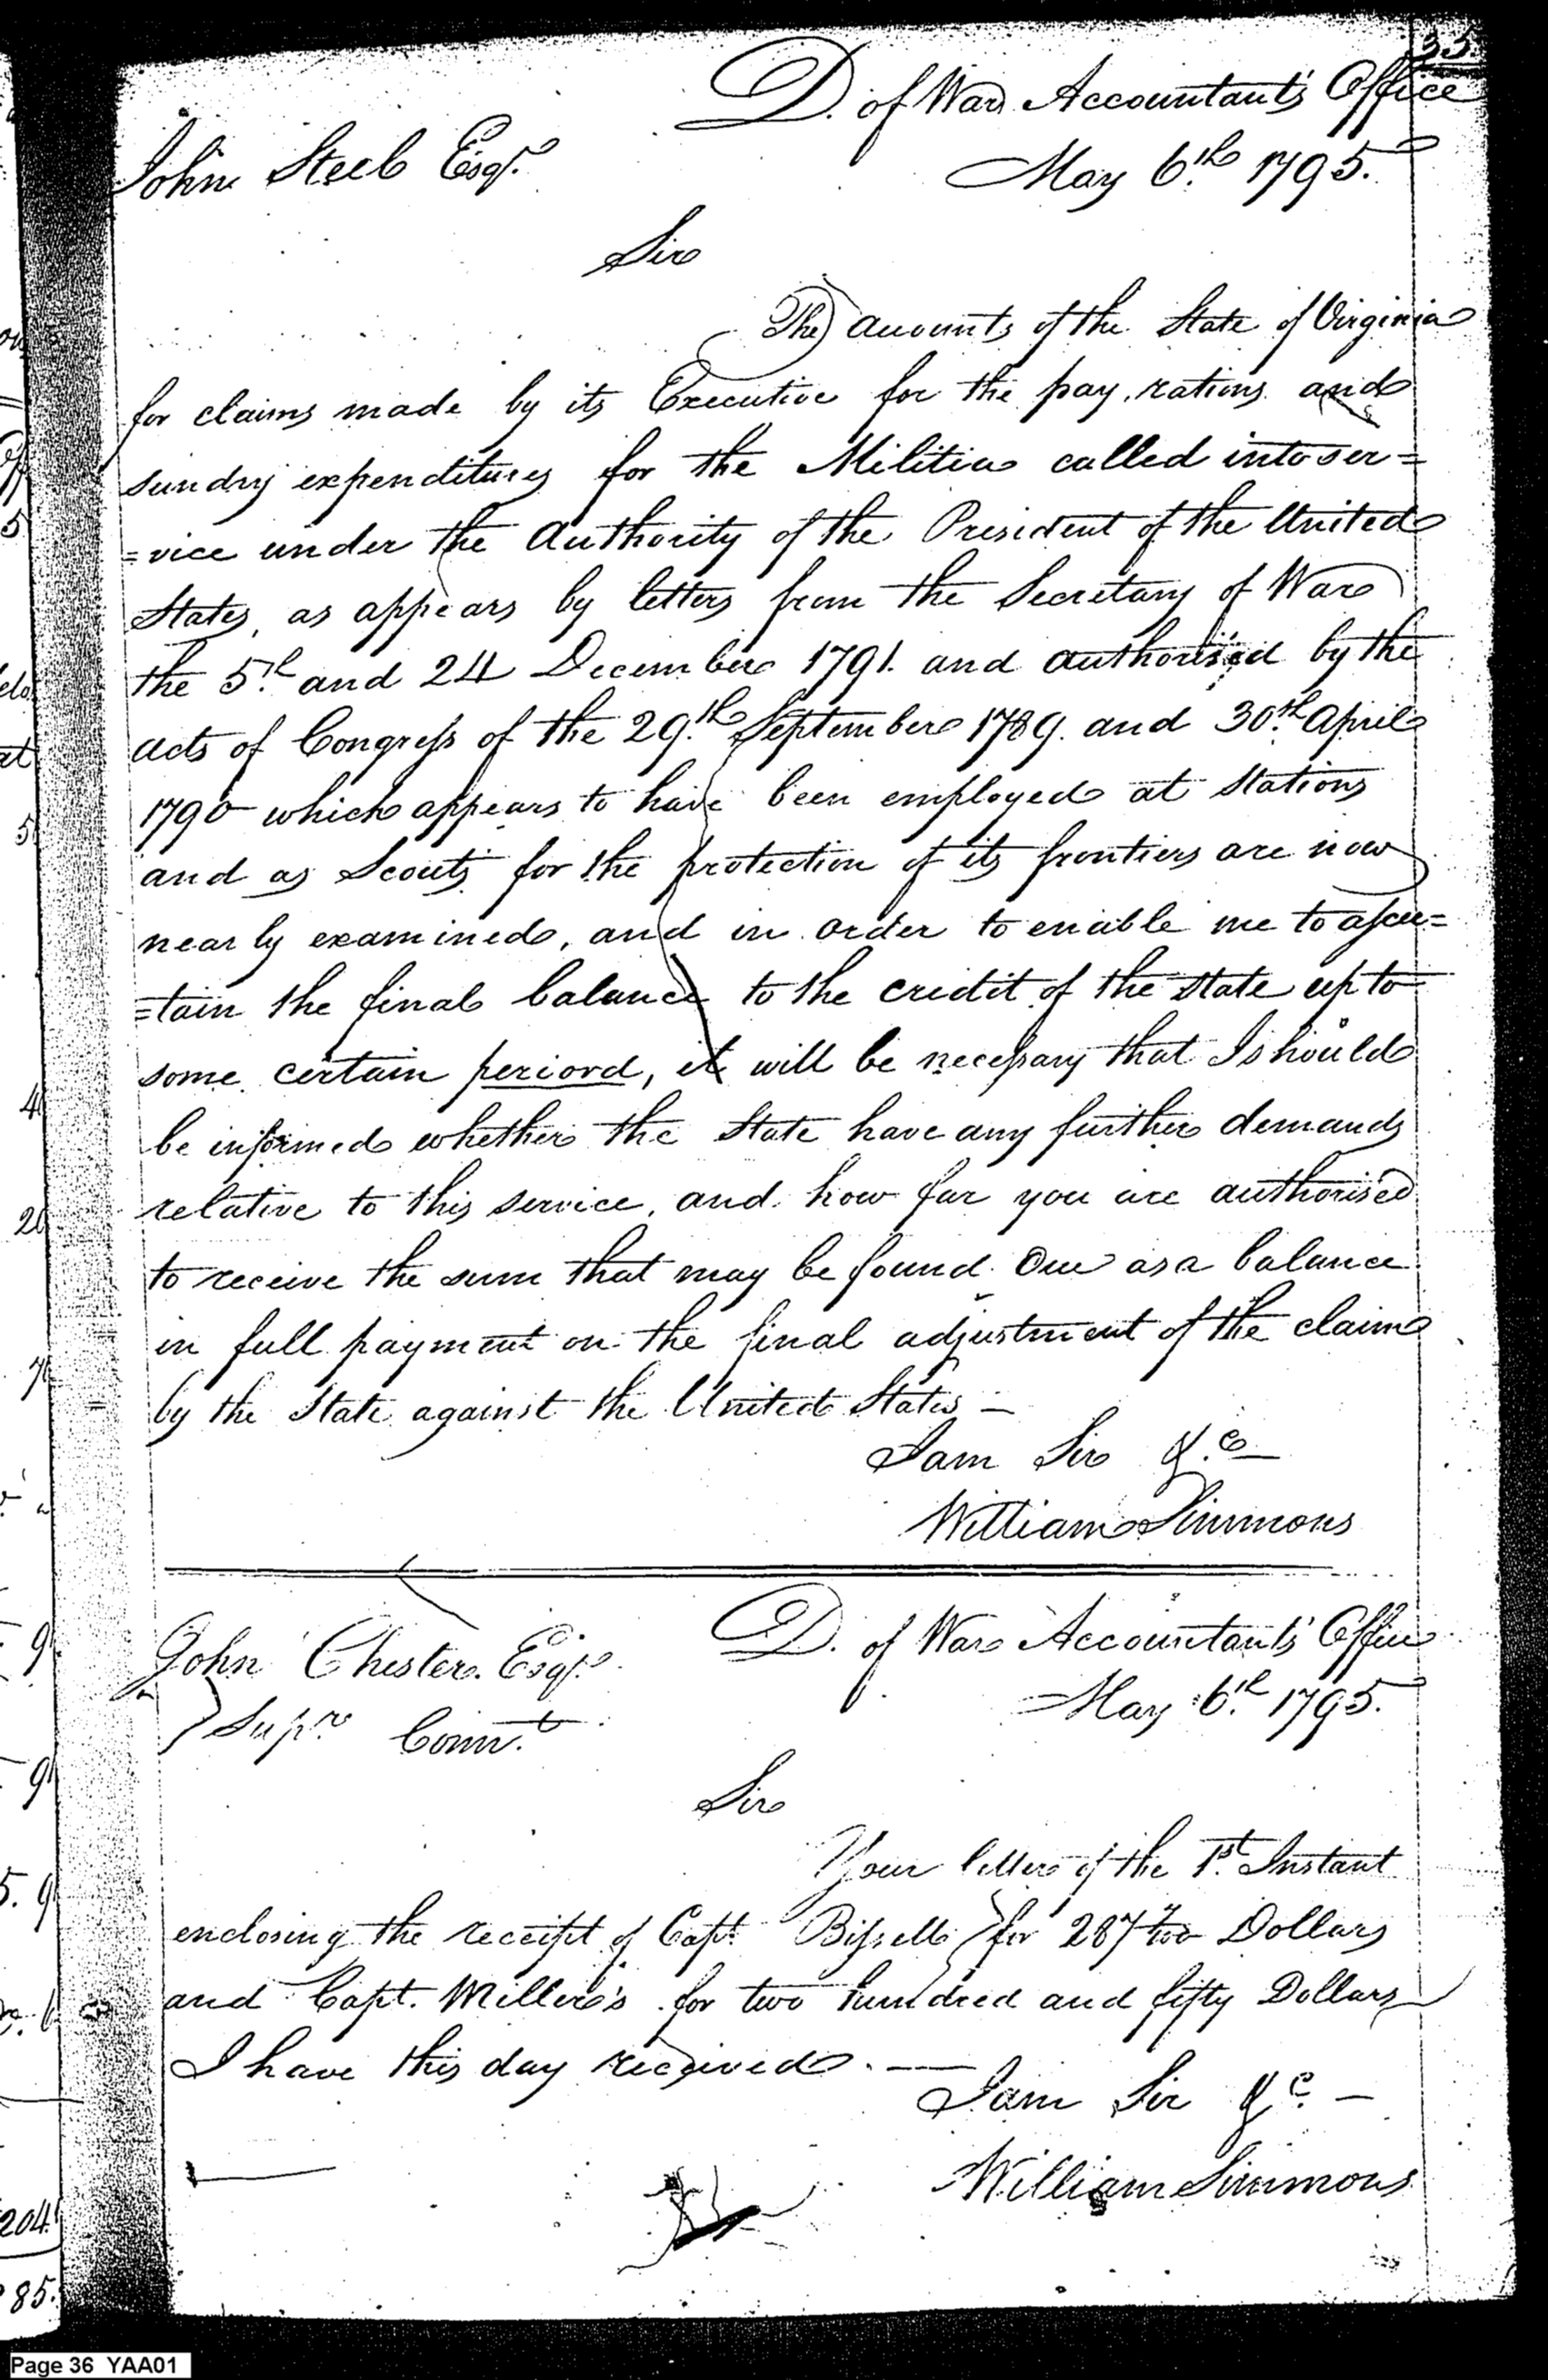 35.
D. of War Accountant's Office
John Steel Esqr.
May 6th 1795.
Sir
The accounts of the State of Virginia
for claims made by its Executive for the pay, rations and
sundry expenditures for the Militia called into ser=
=vice under the Authority of the President of the United
States, as appears by letters from the Secretary of War
the 5th and 24 December 1791. and authorised by the
acts of Congress of the 29th September 1789. and 30th April
1790 which appears to have been employed at Stations
and as Scouts for the protection of its frontiers are now
nearly examined, and in order to enable me to ascer=
=tain the final balance to the credit of the State up to
some certain periord, it will be necessary that I should
be informed whether the State have any further demands
relative to this service, and how far you are authorised
to receive the sum that may be found Due as a balance
in full payment on the final adjustment of the claim
by the State against the United States —
I am Sir &c —
William Simmons
John Chester Esqr.
D. of War Accountant's Office
Supr. Connt.
May 6th 1795.
Sir
Your letter of the 1st Instant
enclosing the receipt of Capt. Bissell for 287 7/100 Dollars
and Capt. Miller's for two hundred and fifty Dollars
I have this day received. —
I am Sir &c. —
William Simmons
204
85.
Page 36 YAA01